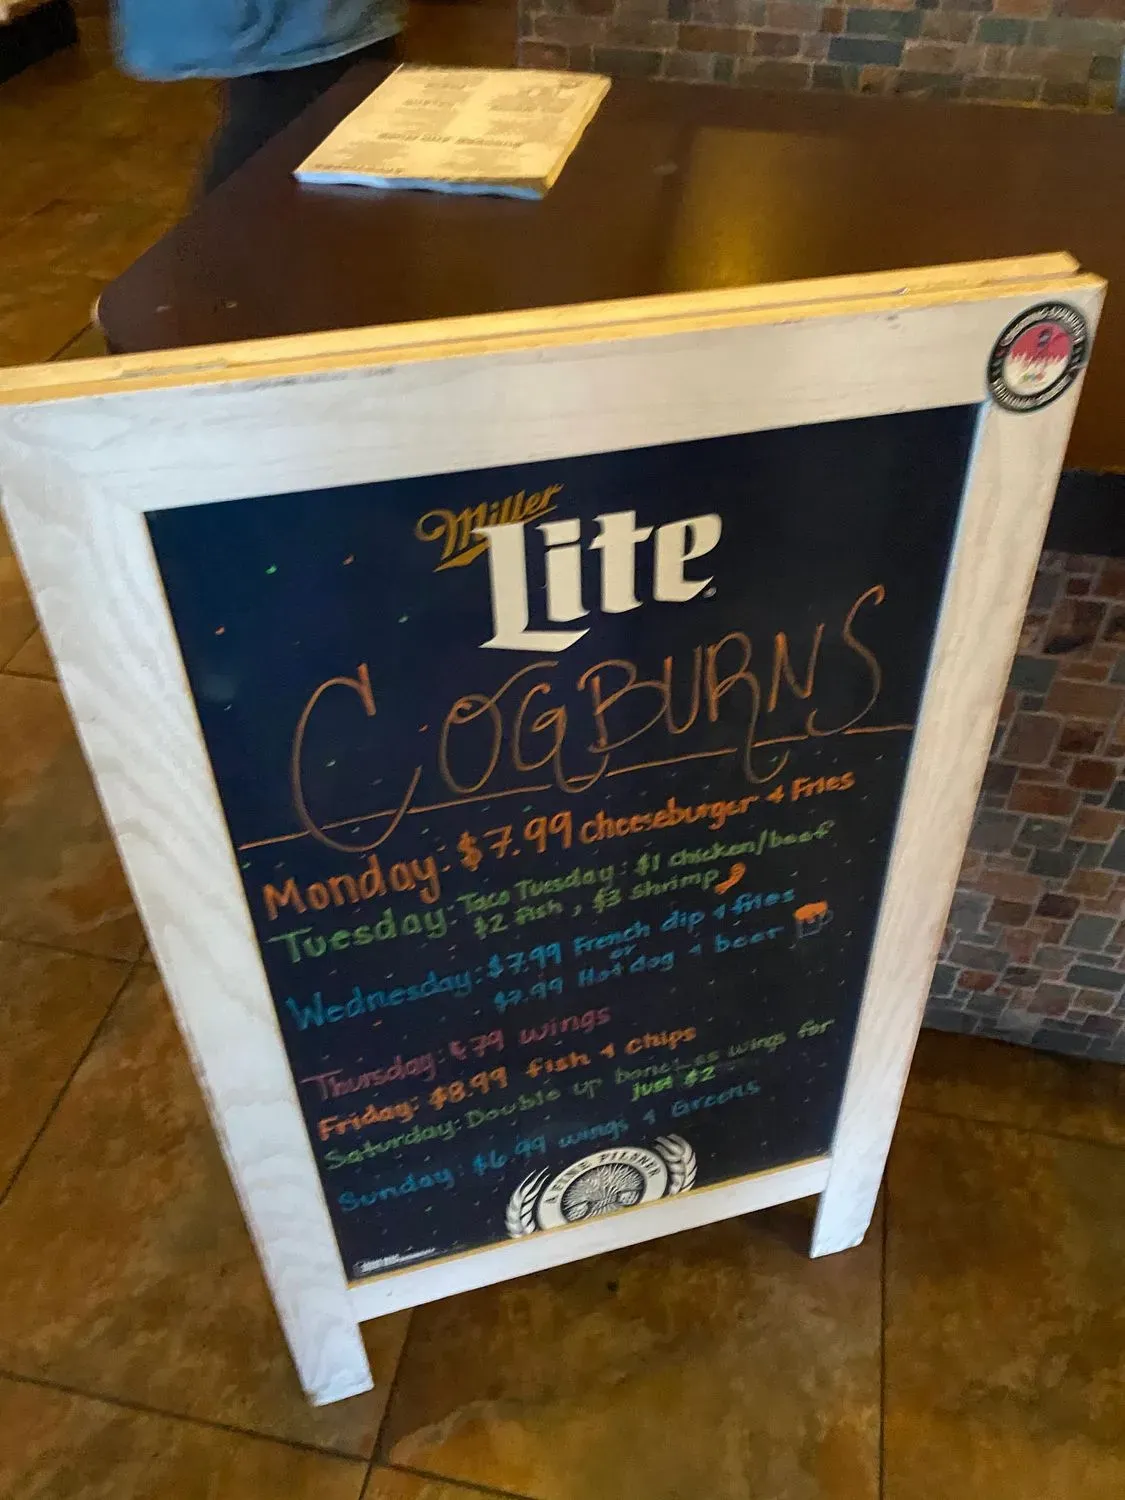 Miller
Lite
COGBURNS
Monday: $7.99 cheeseburger & Fries
Tuesday: Taco Tuesday: $1 chicken/beef
$2 fish, $3 shrimp
Wednesday: $7.99 French dip & fries
or
$7.99 Hot dog & beer
Thursday: ¢79 wings
Friday: $8.99 fish & chips
Saturday: Double up boneless wings for
just $2
Sunday: $6.99 wings & Greens
A FINE PILSNER